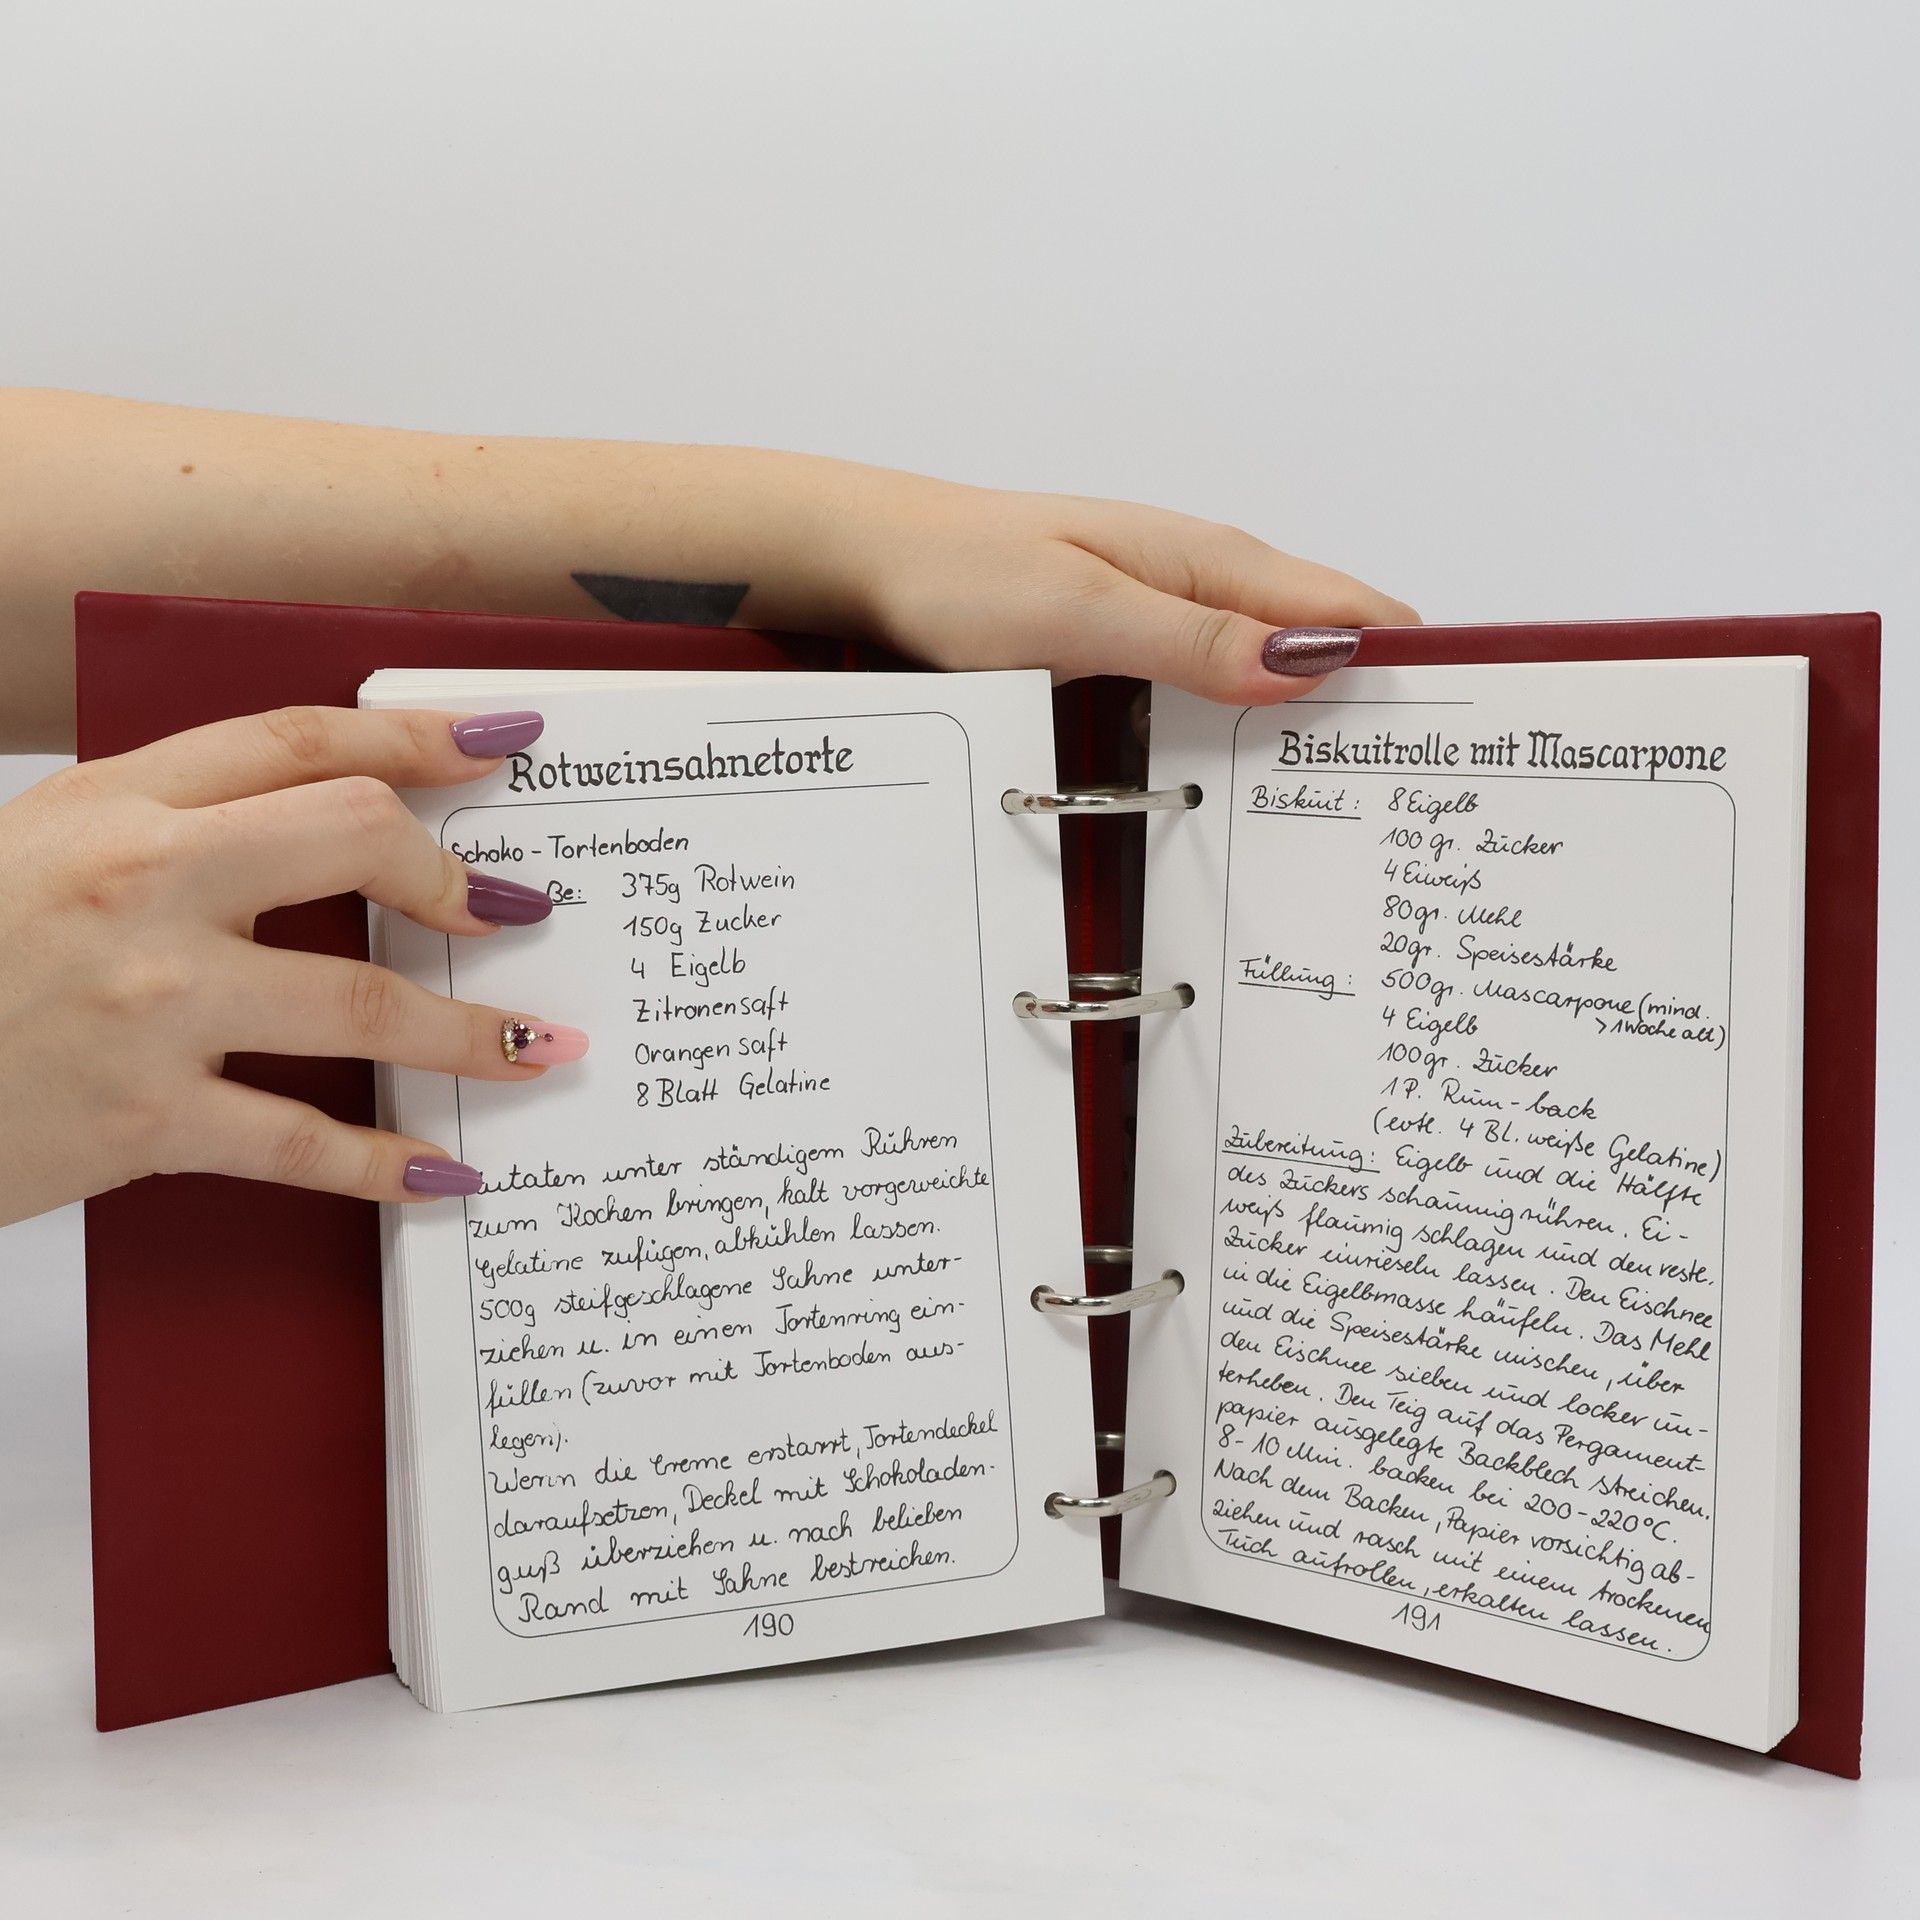 Rotweinsahnetorte
Schoko-Tortenboden
ße: 375g Rotwein
150g Zucker
4 Eigelb
Zitronensaft
Orangensaft
8 Blatt Gelatine
Zutaten unter ständigem Rühren
zum Kochen bringen, kalt vorgeweichte
Gelatine zufügen, abkühlen lassen.
500g steifgeschlagene Sahne unter-
ziehen u. in einen Tortenring ein-
füllen (zuvor mit Tortenboden aus-
legen).
Wenn die Creme erstarrt, Tortendeckel
daraufsetzen, Deckel mit Schokoladen-
guß überziehen u. nach belieben
Rand mit Sahne bestreichen.
190
Biskuitrolle mit Mascarpone
Biskuit: 8 Eigelb
100 gr. Zucker
4 Eiweiß
80gr. Mehl
20gr. Speisestärke
Füllung: 500gr. Mascarpone (mind.
> 1 Woche alt)
4 Eigelb
100gr. Zucker
1 P. Rum-back
(evtl. 4 Bl. weiße Gelatine)
Zubereitung: Eigelb und die Hälfte
des Zuckers schaumig rühren. Ei-
weiß flaumig schlagen und den restl.
Zucker einrieseln lassen. Den Eischnee
in die Eigelbmasse häufeln. Das Mehl
und die Speisestärke mischen, über
den Eischnee sieben und locker un-
terheben. Den Teig auf das Pergament-
papier ausgelegte Backblech streichen.
8-10 Min. backen bei 200-220°C.
Nach dem Backen, Papier vorsichtig ab-
ziehen und rasch mit einem trockenen
Tuch aufrollen, erkalten lassen.
191